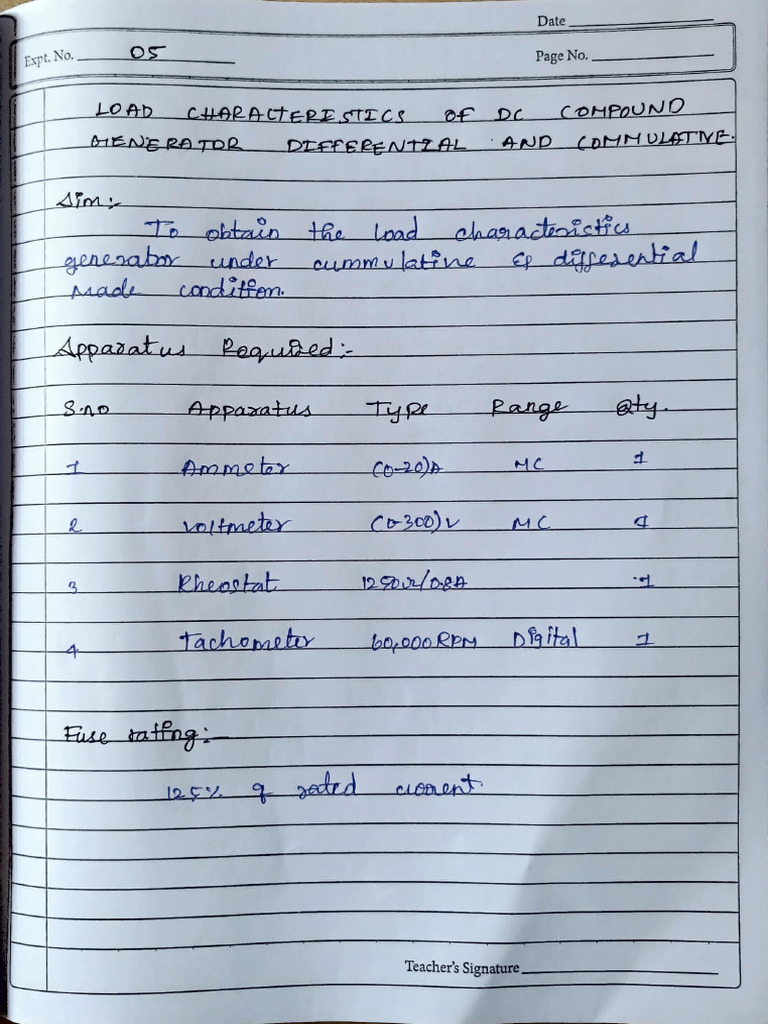 Date
Expt. No. 05
Page No.
LOAD CHARACTERISTICS OF DC COMPOUND
GENERATOR DIFFERENTIAL AND COMMULATIVE.
Aim:-
To obtain the load characteristics
generator under cummulative & differential
made condition.
Apparatus Required:-
S.no Apparatus Type Range Qty.
1 Ammeter (0-20)A MC 1
2 Voltmeter (0-300)V MC 1
3 Rheostat 1250Ω/0.8A 1
4 Tachometer 60,000RPM Digital 1
Fuse rating:-
125% of rated current.
Teacher's Signature